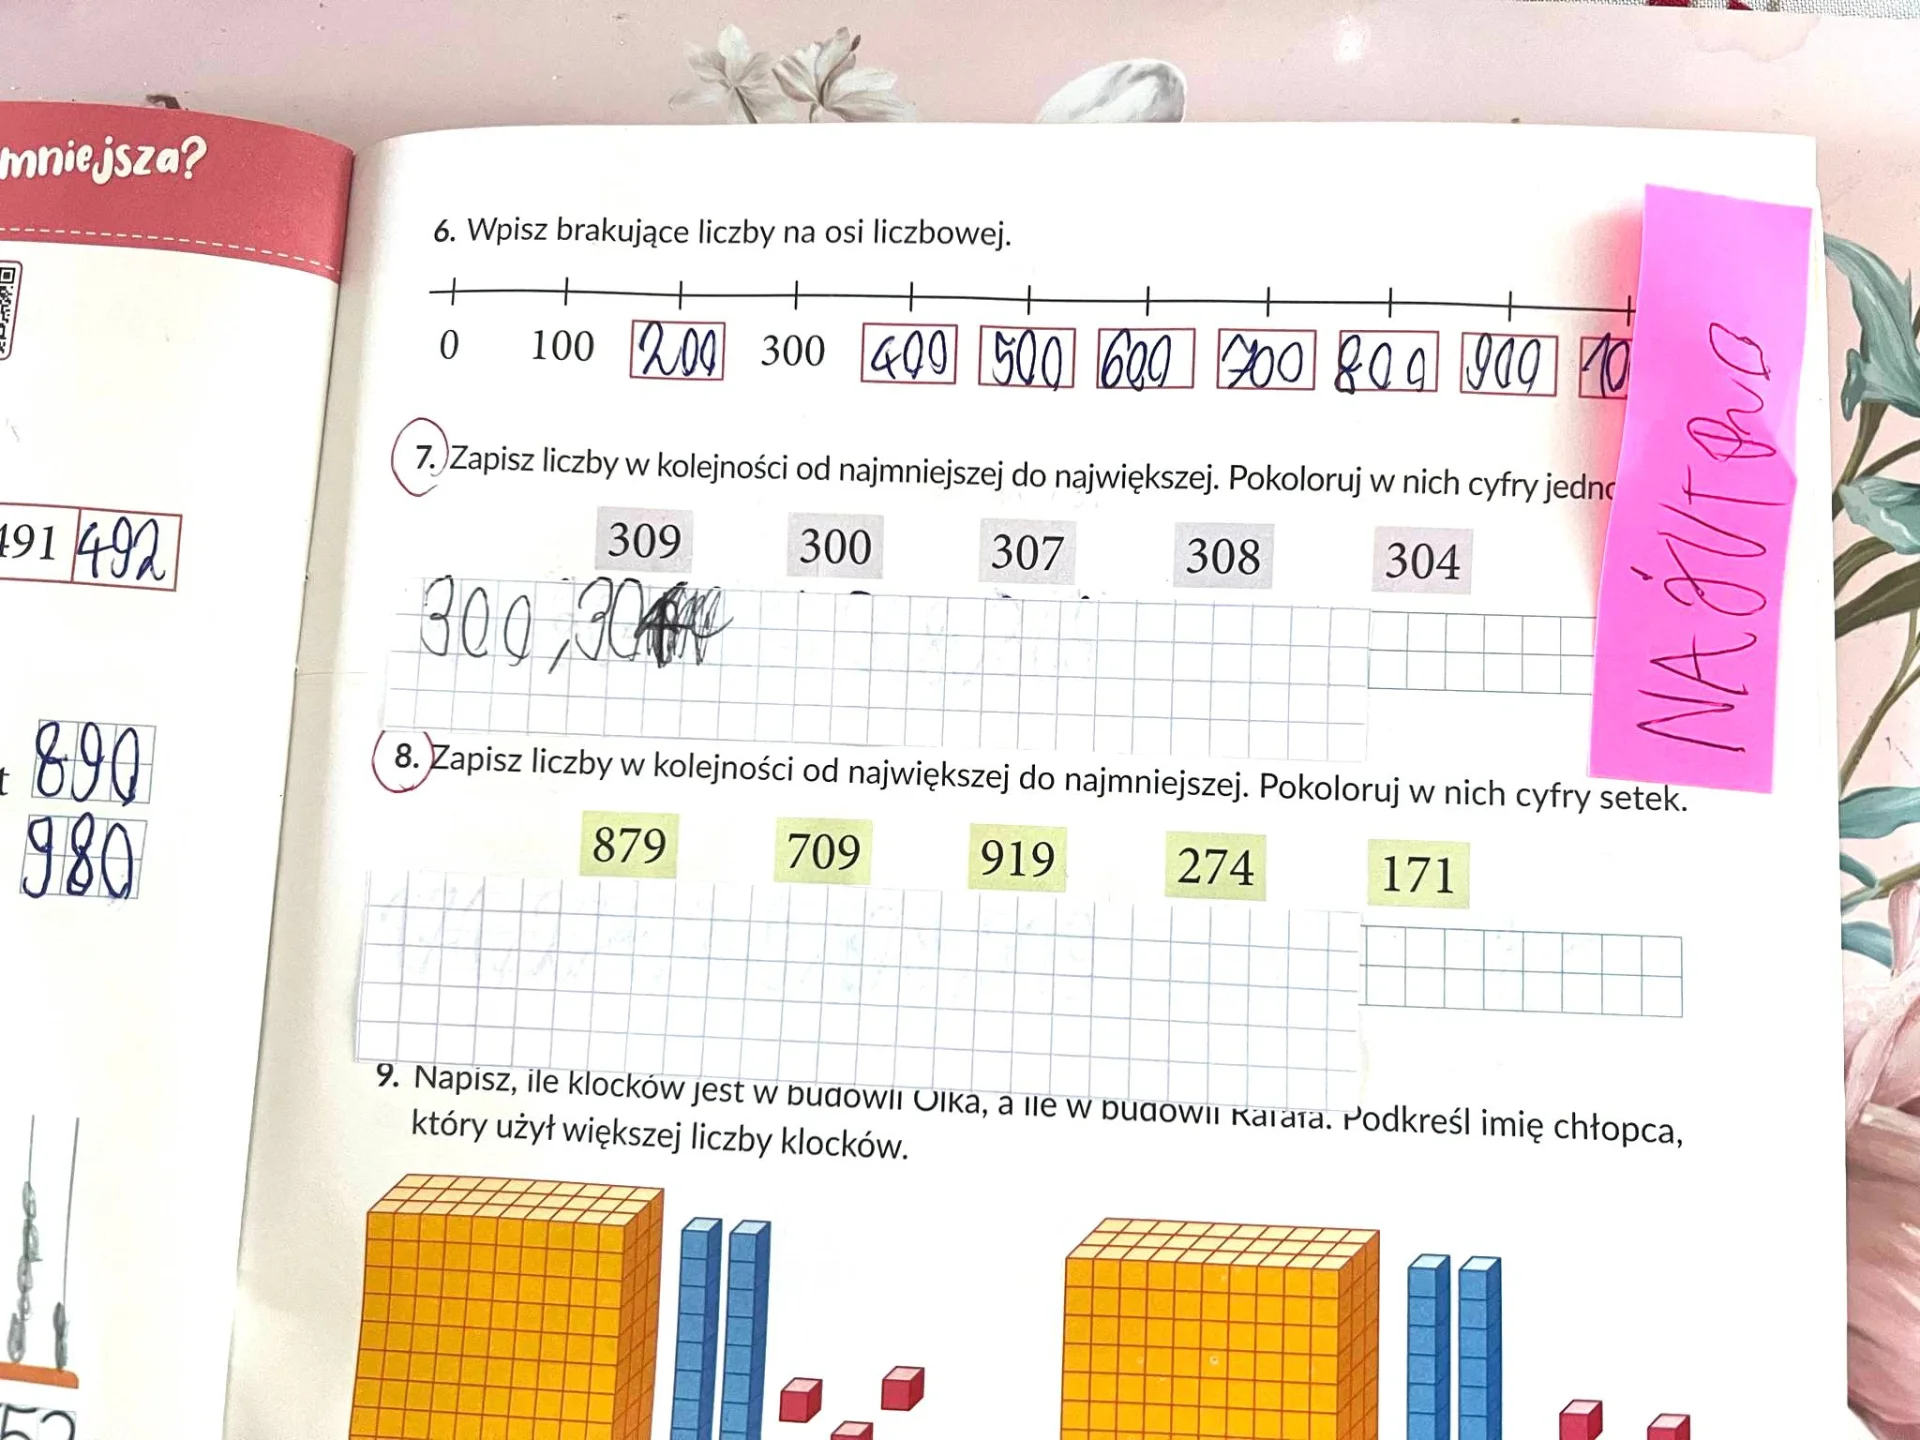 mniejsza?
491 492
890
980
6. Wpisz brakujące liczby na osi liczbowej.
0 100 200 300 400 500 600 700 800 900 10
7. Zapisz liczby w kolejności od najmniejszej do największej. Pokoloruj w nich cyfry jedno
309 300 307 308 304
300, 30
8. Zapisz liczby w kolejności od największej do najmniejszej. Pokoloruj w nich cyfry setek.
879 709 919 274 171
9. Napisz, ile klocków jest w budowli Olka, a ile w budowli Rafała. Podkreśl imię chłopca,
który użył większej liczby klocków.
NA JUTRO